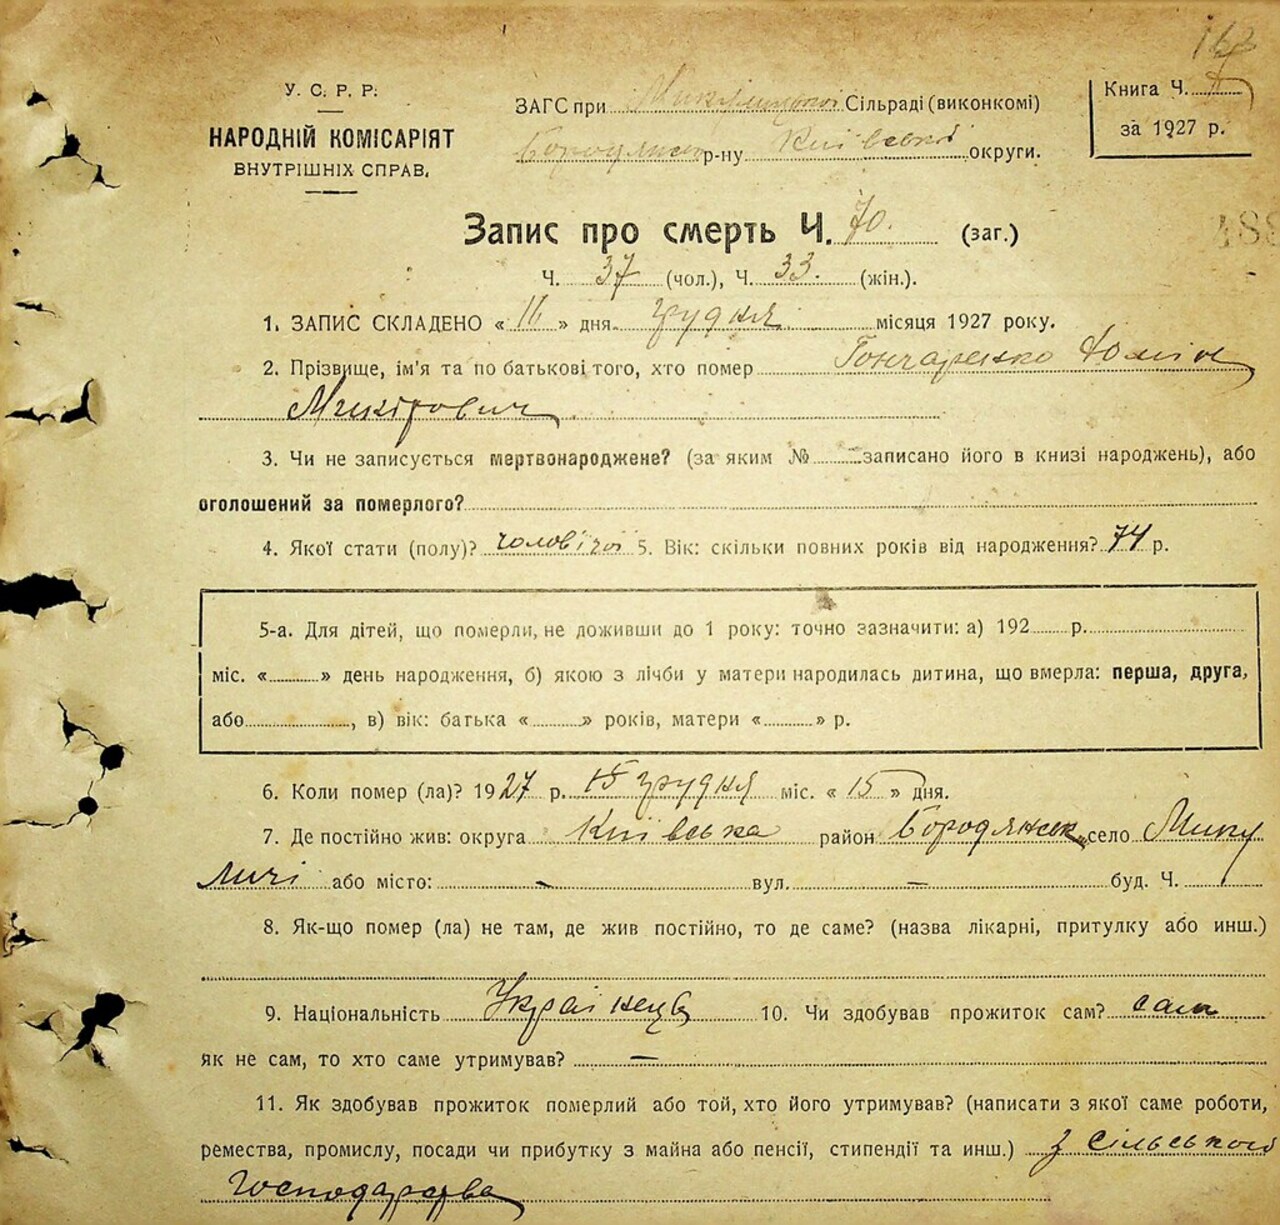 У. С. Р. Р.
НАРОДНІЙ КОМІСАРІЯТ
ВНУТРІШНІХ СПРАВ.
ЗАГС при Микулицької Сільраді (виконкомі)
Бородянськ р-ну Київської округи.
Книга Ч.
за 1927 р.
Запис про смерть Ч. 70. (заг.)
Ч. 37 (чол.), Ч. 33. (жін.).
1. ЗАПИС СКЛАДЕНО « 16 » дня грудня місяця 1927 року.
2. Прізвище, ім'я та по батькові того, хто помер Гончаренко
3. Чи не записується мертвонароджене? (за яким № записано його в книзі народжень), або
оголошений за померлого?
4. Якої стати (полу)? чолов'ічої 5. Вік: скільки повних років від народження? 74 р.
5-а. Для дітей, що померли, не доживши до 1 року: точно зазначити: а) 192 р.
міс. « » день народження, б) якою з лічби у матери народилась дитина, що вмерла: перша, друга,
або , в) вік: батька « » років, матери « » р.
6. Коли помер (ла)? 1927 р. 15 грудня міс. « 15 » дня.
7. Де постійно жив: округа Київська район Бородянськ село Мику
личі або місто: — вул. — буд. Ч.
8. Як-що помер (ла) не там, де жив постійно, то де саме? (назва лікарні, притулку або инш.)
9. Національність Украінець 10. Чи здобував прожиток сам? сам
як не сам, то хто саме утримував? —
11. Як здобував прожиток померлий або той, хто його утримував? (написати з якої саме роботи,
ремества, промислу, посади чи прибутку з майна або пенсії, стипендії та инш.) з сільського
господарства